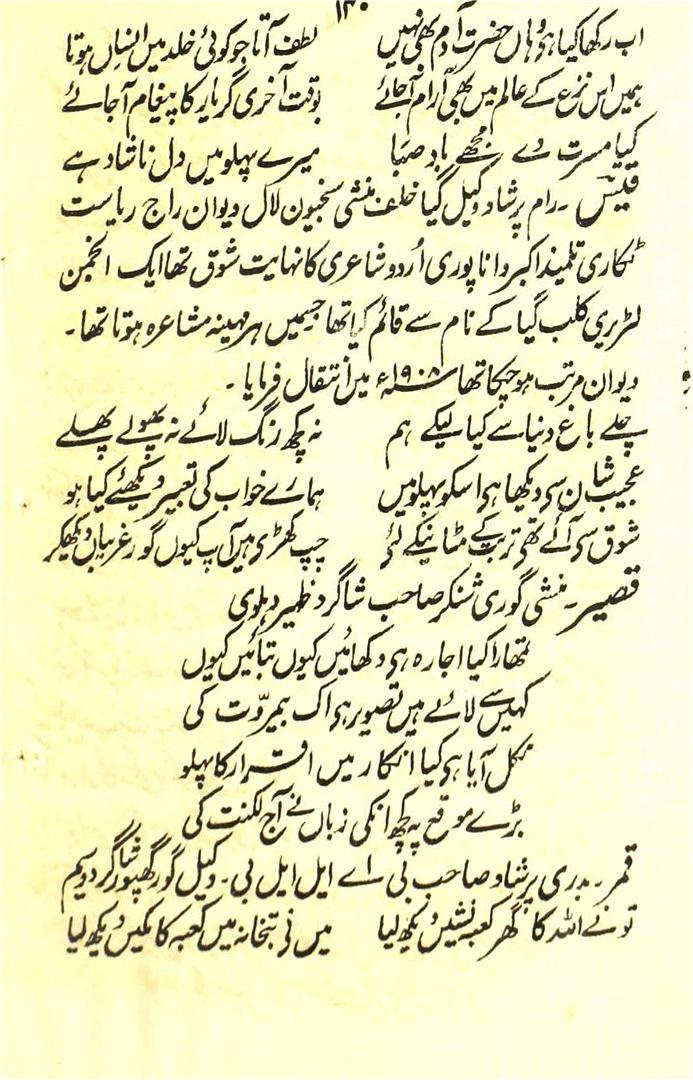 ۱۴۰
اب رکھا کیا ہو وہاں حضرت آدم بھی نہیں لطف آتا جو کوئی خلد میں انساں ہوتا
ہمیں اس نزع کے عالم میں بھی آرام آجائے بوقت آخری گر یار کا پیغام آجائے
کیا مسرت دے مجھے باد صبا میرے پہلو میں دل ناشاد ہے
قیس ۔ رام پرشاد وکیل گیا خلف منشی سنجیون لال دیوان راج ریاست
ٹکاری تلمیذ اکبر دانا پوری اُردو شاعری کا نہایت شوق تھا ایک انجمن
لٹریری کلب گیا کے نام سے قائم کیا تھا جسمیں ہر مہینہ مشاعرہ ہوتا تھا ۔
دیوان مرتب ہو چکا تھا ۱۹۰۸ء میں انتقال فرمایا ۔
چلے باغ دنیا سے کیا لیکے ہم نہ کچھ رنگ لائے نہ پھولے پھلے
عجیب شان سی دیکھا ہی اسکو پہلو میں ہمارے خواب کی تعبیر دیکھئے کیا ہو
شوق سی آئے تھی تربت کے مٹانیکے لئی چپ کھڑی ہیں آپ کیوں گور غریباں دیکھکر
قصیر ۔ منشی گوری شنکر صاحب شاگرد ظہیر دہلوی
تمھارا کیا اجارہ ہی دکھائیں کیوں بتائیں کیوں
کہیں سے لائے ہیں تصویر ہم اک بیمروّت کی
نکل آیا ہی کیا انکار میں اقرار کا پہلو
بڑے موقع پہ کچھ انکی زباں نے آج لکنت کی
قمر ۔ بدری پرشاد صاحب بی اے ایل ایل بی ۔ وکیل گورکھپور شاگرد وسیم
تو نے اللہ کا گھر کعبہ نشیں دیکھ لیا میں نی بتخانہ میں کعبہ کا مکیں دیکھ لیا